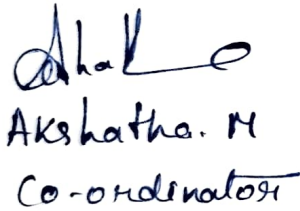 Akshatha. M
Co-ordinator